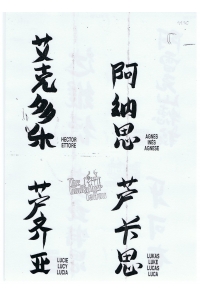 艾克多乐
HECTOR
ETTORE
阿纳思
AGNES
INES
AGNESE
芦齐亚
LUCIE
LUCY
LUCIA
芦卡思
LUKAS
LUKE
LUCAS
LUCA